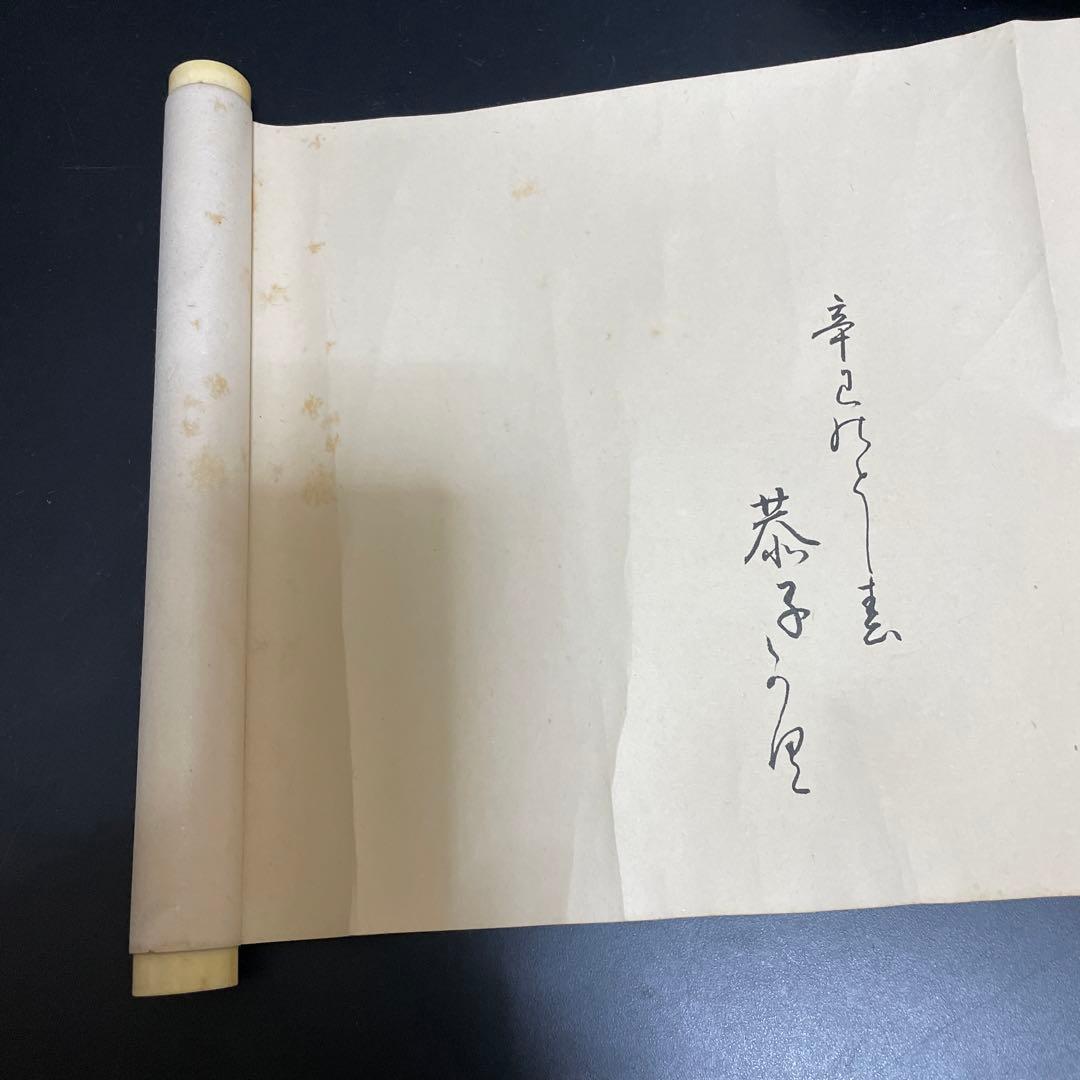 辛巳のとし春
恭子